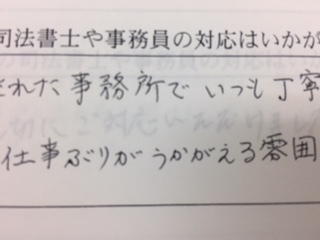 司法書士や事務員の対応はいかが
された事務所でいつも丁寧
仕事ぶりがうかがえる雰囲